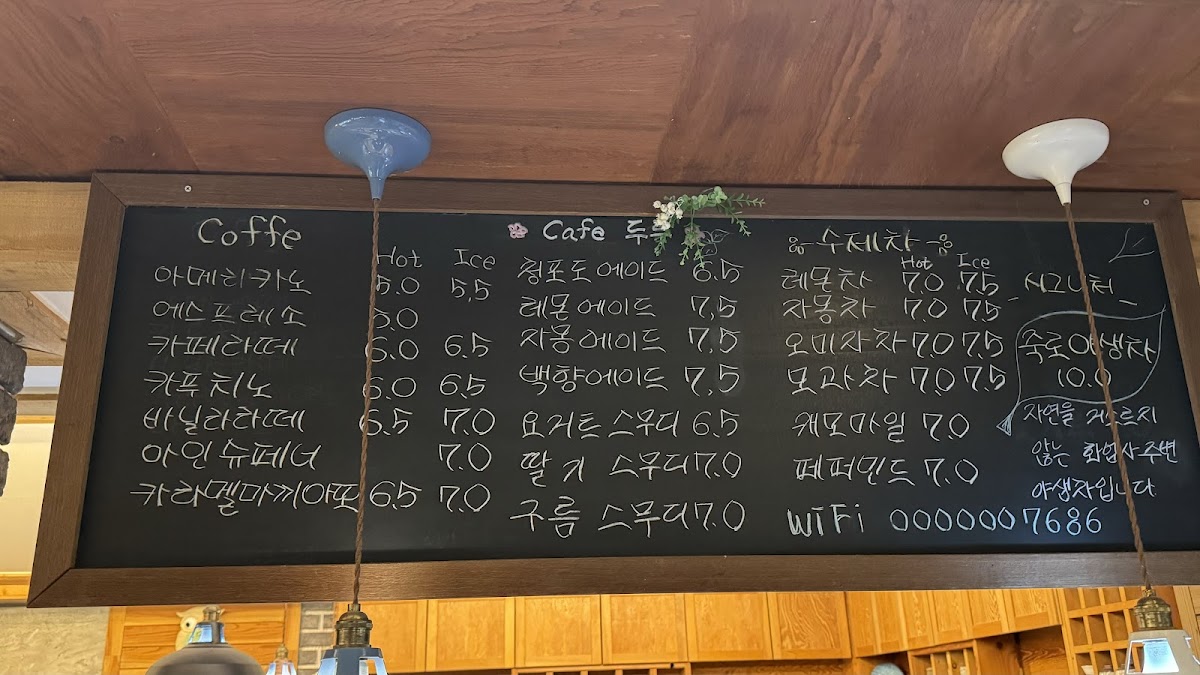 Coffe
Hot Ice
아메리카노 5.0 5,5
에스프레소 5.0
카페라떼 6.0 6.5
카푸치노 6.0 6.5
바닐라라떼 6.5 7.0
아인슈페너 7.0
카라멜마끼아또 6.5 7.0
Cafe
청포도에이드 6.5
레몬에이드 7,5
자몽에이드 7,5
백향에이드 7,5
요거트 스무디 6.5
딸기 스무디 7.0
구름 스무디 7.0
수제차
Hot Ice
레몬차 7.0 7.5
자몽차 7.0 7.5
오미자차 7.0 7.5
모과차 7.0 7.5
캐모마일 7.0
페퍼민트 7.0
WiFi 0000007686
시그니처
죽로야생차
10.0
자연을 거스르지
않는 화엄사 주변
야생차입니다